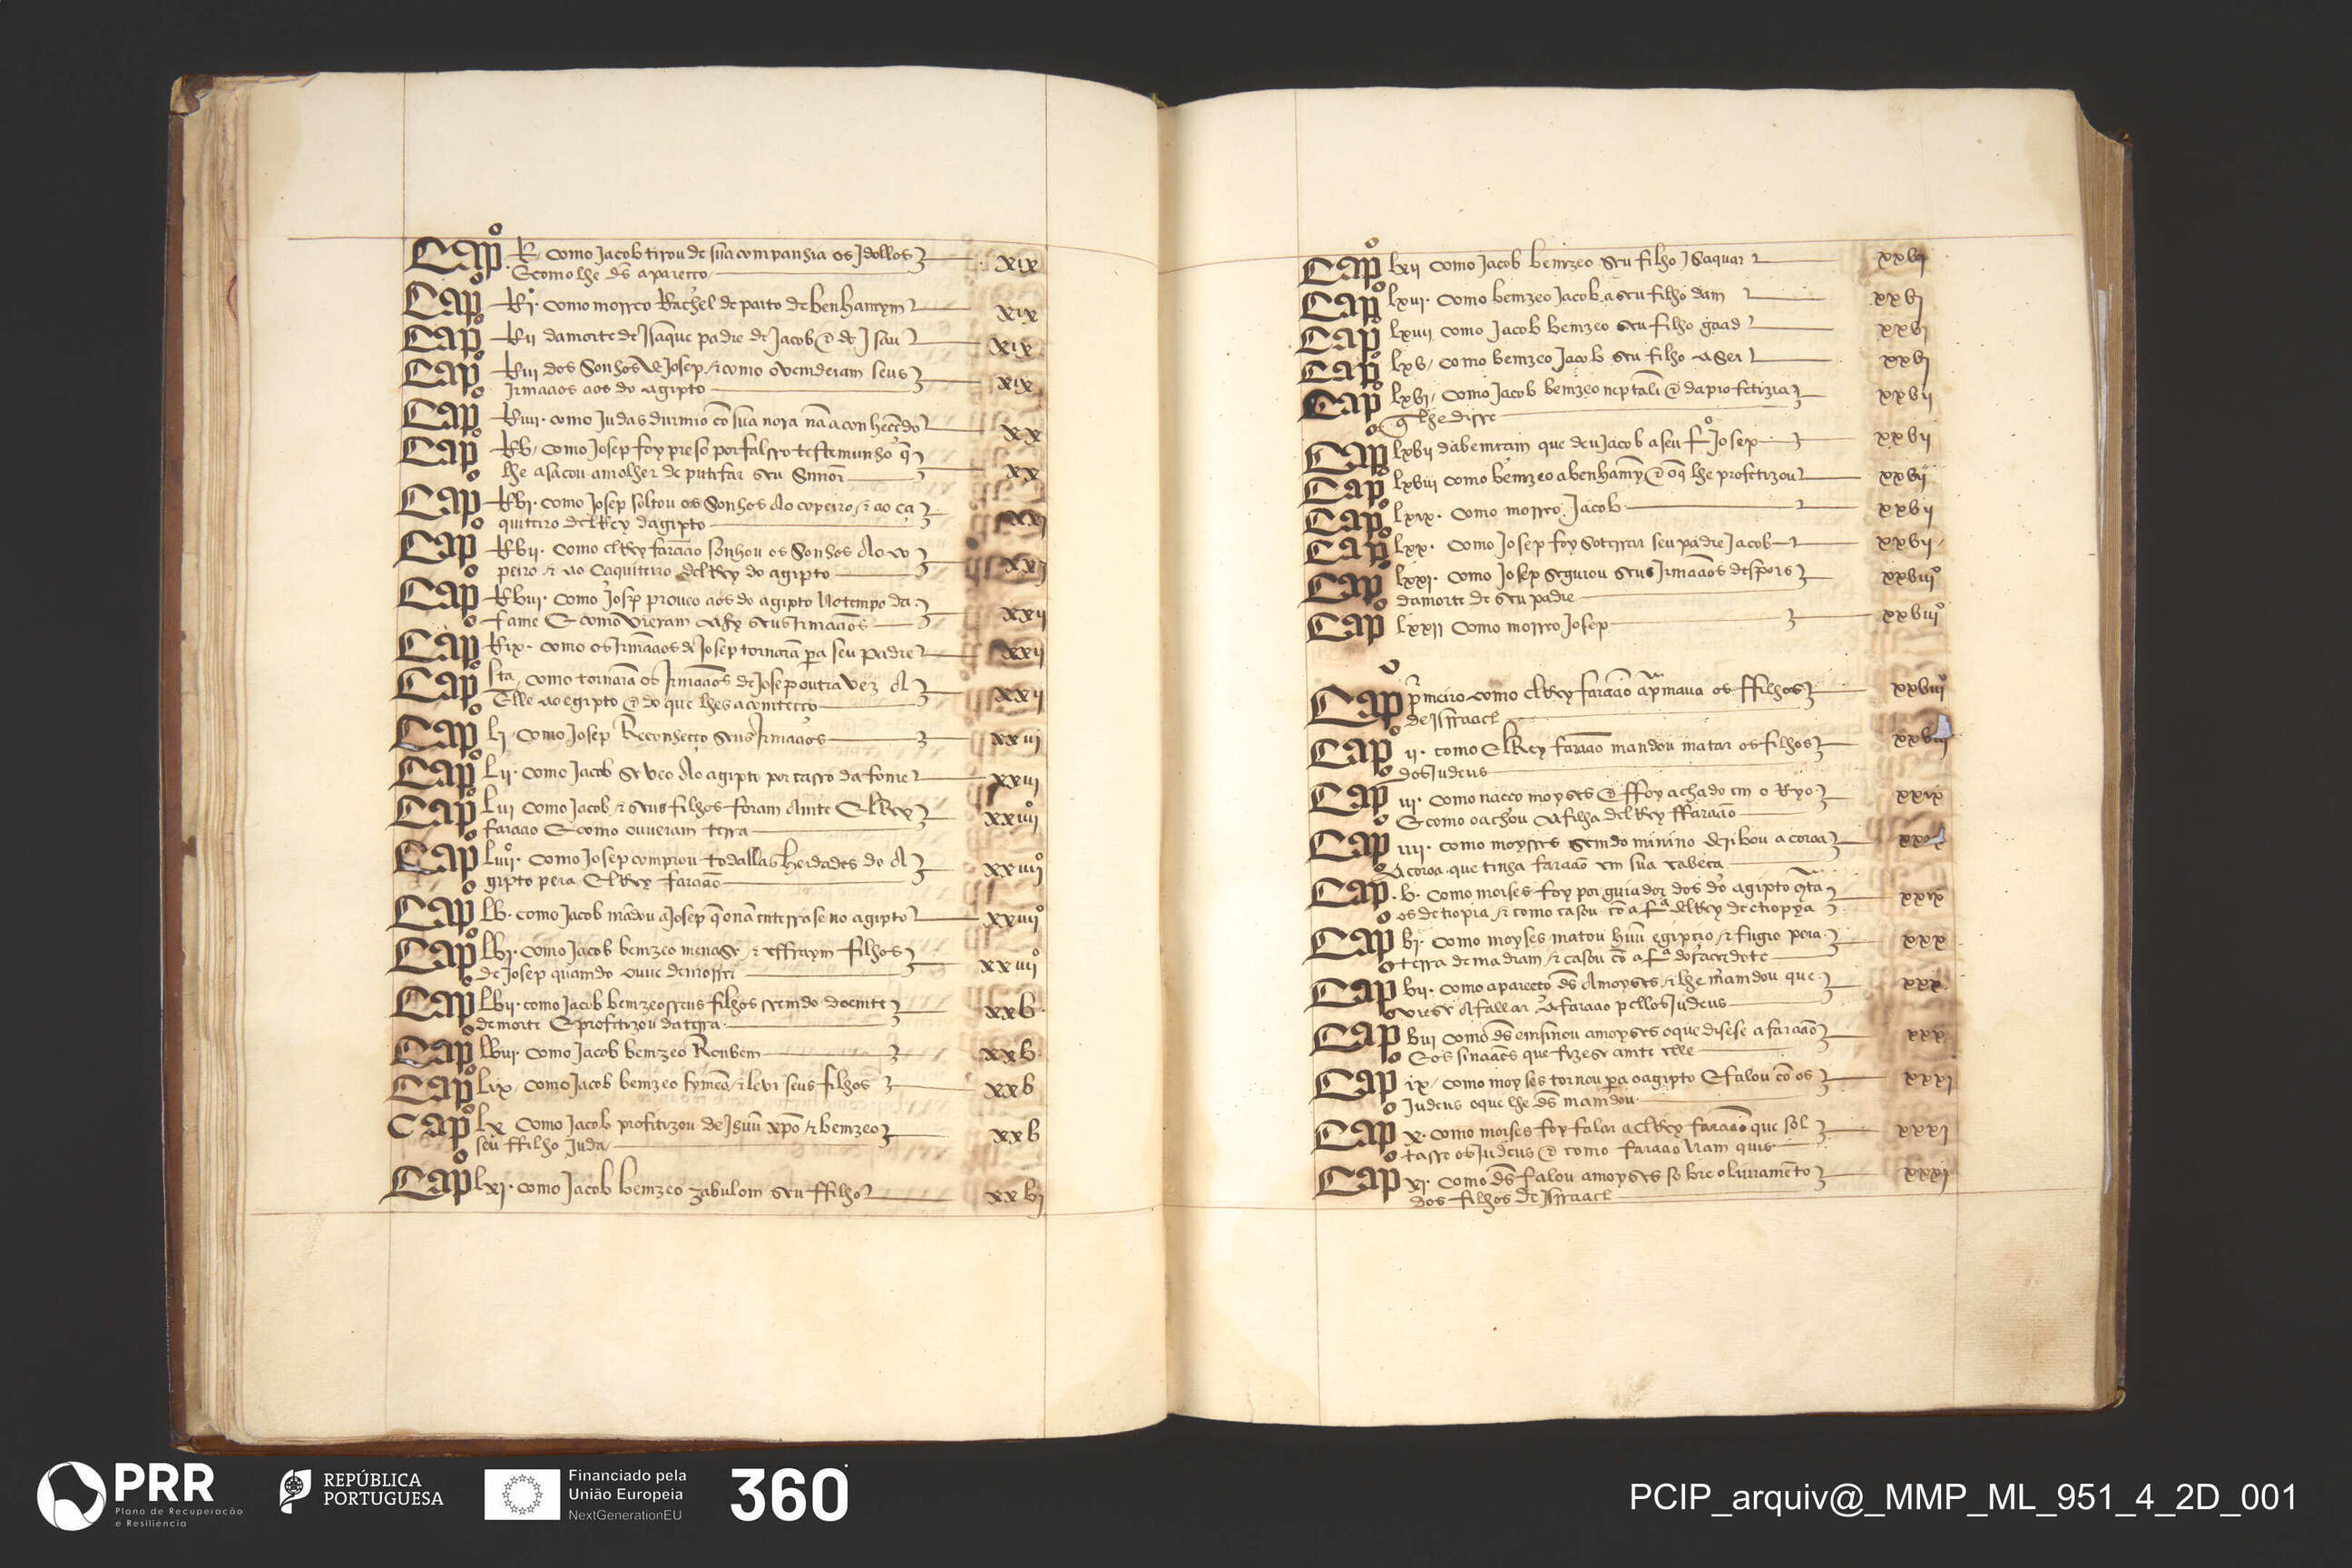 Capº R. como Jacob tirou de sua companhia os Jdollos xix
E como lhe ds̃ apareceo
Capº Ri. como morreo Rachel de parto de benhamym xix
Capº Rii da morte de Jsaque padre de Jacob e de Jsau xix
Capº Riii dos Sonhos de Josep / e como o venderam seus xix
Jrmaãos aos do agipto
Capº Riiii. como Judas durmio cõ sua nora nã a conhecẽdo xx
Capº Rb / como Josep foy preso por falsso testemunho q̃
lhe asacou a molher de putifar seu Snñor xx
Capº Rbi. como Josep soltou os Sonhos Ao copeiro / e ao ça xxi
quiteiro delRey dagipto
Capº Rbii. como elRey faraão sonhou os Sonhos Ao co xxi
peiro e ao Çaquiteiro delRey do agipto
Capº Rbiii. como Josep proveo aos do agipto No tempo da xxii
fame E como vieram ahy seus Jrmaãos
Capº Rix. como os Jrmaãos de Josep tornarã pera seu padre xxii
Capº Lta, como tornarã os Jrmaãos de Josep outra vez A xxii
Elle ao egipto e do que lhes aconteceo
Capº Li. como Josep Reconheceo seus Jrmaãos xxiii
Capº Lii. como Jacob se veo Ao agipto por causo da fome xxiii
Capº Liii como Jacob e seus filhos foram Ante ElRey xxiiiiº
faraao E como ouveram terra
Capº Liiiiº. como Josep comprou todallas herdades do A xxiiiiº
gipto pera ElRey faraão
Capº Lb. como Jacob mãdou a Josep q̃ o nã enterrase no agipto xxiiiiº
Capº Lbi. como Jacob bemzeo menase / e effraym filhos xxiiiiº
de Josep quamdo ouve de morrer
Capº Lbii. como Jacob bemzeo sseus filhos ssemdo doemte xxb
de morte E profetizou da terra
Capº Lbiii. como Jacob bemzeo Reubem xxb
Capº Lix / como Jacob bemzeo symeõ / e levi seus filhos xxb
Capº Lx como Jacob profitizou de Jsuũ xpõ e bemzeo xxb
seu ffilho Juda
Capº Lxi. como Jacob bemzeo zabulom seu ffilho xxbi
Capº lxii como Jacob bemzeo seu filho Jsaquar xxbi
Capº lxiii. como bemzeo Jacob a seu filho dam xxbi
Capº lxiiii como Jacob bemzeo seu filho gaad xxbi
Capº lxb / como bemzeo Jacob seu filho aser xxbi
Capº lxbi / como Jacob bemzeo neptali e da profetizia xxbii
q̃ lhe disse
Capº lxbii da bemçam que deu Jacob a seu fº Josep xxbii
Capº lxbiii como bemzeo a benhamỹ e o q̃ lhe profetizou xxbii
Capº lxix. como morreo Jacob xxbii
Capº lxx. como Josep foy Soterrar seu padre Jacob xxbii
Capº lxxi. como Josep seguiou seus Jrmaãos despois xxbiiiº
da morte de seu padre
Capº lxxii como morreo Josep xxbiiiº
Capº pr̃meiro como elRey faraão apr̃mava os ffilhos xxbiiiº
de Jsrraael
Capº ii. como ElRey faraao mandou matar os filhos xxbiii
dos Judeus
Capº iii. como naceo moyses e ffoy achado em o Ryo xxix
E como o achou a filha delRey ffaraão
Capº iiii. como moyses semdo minino deribou a coroa
A coroa que tinha faraão em sua cabeça
Capº b. como moises foy por guiador dos do agipto cõtra xxix
os de tiopia / e como casou cõ a fª delRey de etiopya
Capº bi. como moyses matou huũ egipcio / e fugio pera xxx
terra de madiam / e casou cõ a fª do sacerdote
Capº bii. como apareceo ds̃ A moyses / e lhe mamdou que xxx
viese A fallar A faraao pellos Judeus
Capº biii como ds̃ emsinou a moyses o que disese a faraão xxx
E os sinaaes que fizese amte elle
Capº ix / como moyses tornou pera o agipto E falou cõ os xxxi
Judeus o que lhe ds̃ mamdou
Capº x. como moises foy falar a elRey faraão que sol xxxi
tasse os Judeus e como faraao Nam quis
Capº xi. como ds̃ falou a moyses sobre o livramẽto xxxi
dos filhos de Jsrraael
PRR
Plano de Recuperação
e Resiliência
REPÚBLICA
PORTUGUESA
Financiado pela
União Europeia
NextGenerationEU
360
PCIP_arquiv@_MMP_ML_951_4_2D_001